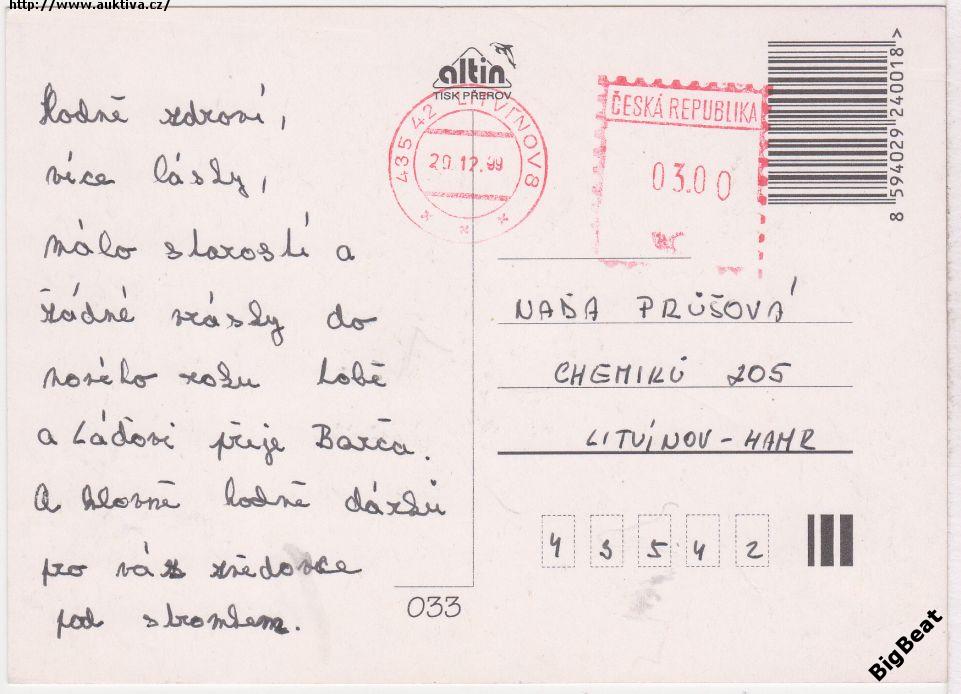 http://www.auktiva.cz/
Hodně zdraví,
více lásky,
málo starostí a
žádné vrásky do
nového roku tobě
a Láďovi přeje Barča.
A hlavně hodně dárků
pro vás
pod stromkem.
altin
TISK PŘEROV
435 42 LITVÍNOV 8
20.12.99
ČESKÁ REPUBLIKA
03.00
8 594029 240018 >
NAĎA PRŮŠOVÁ
CHEMIKŮ 205
LITVÍNOV-HAMR
4 3 5 4 2
033
BigBeat